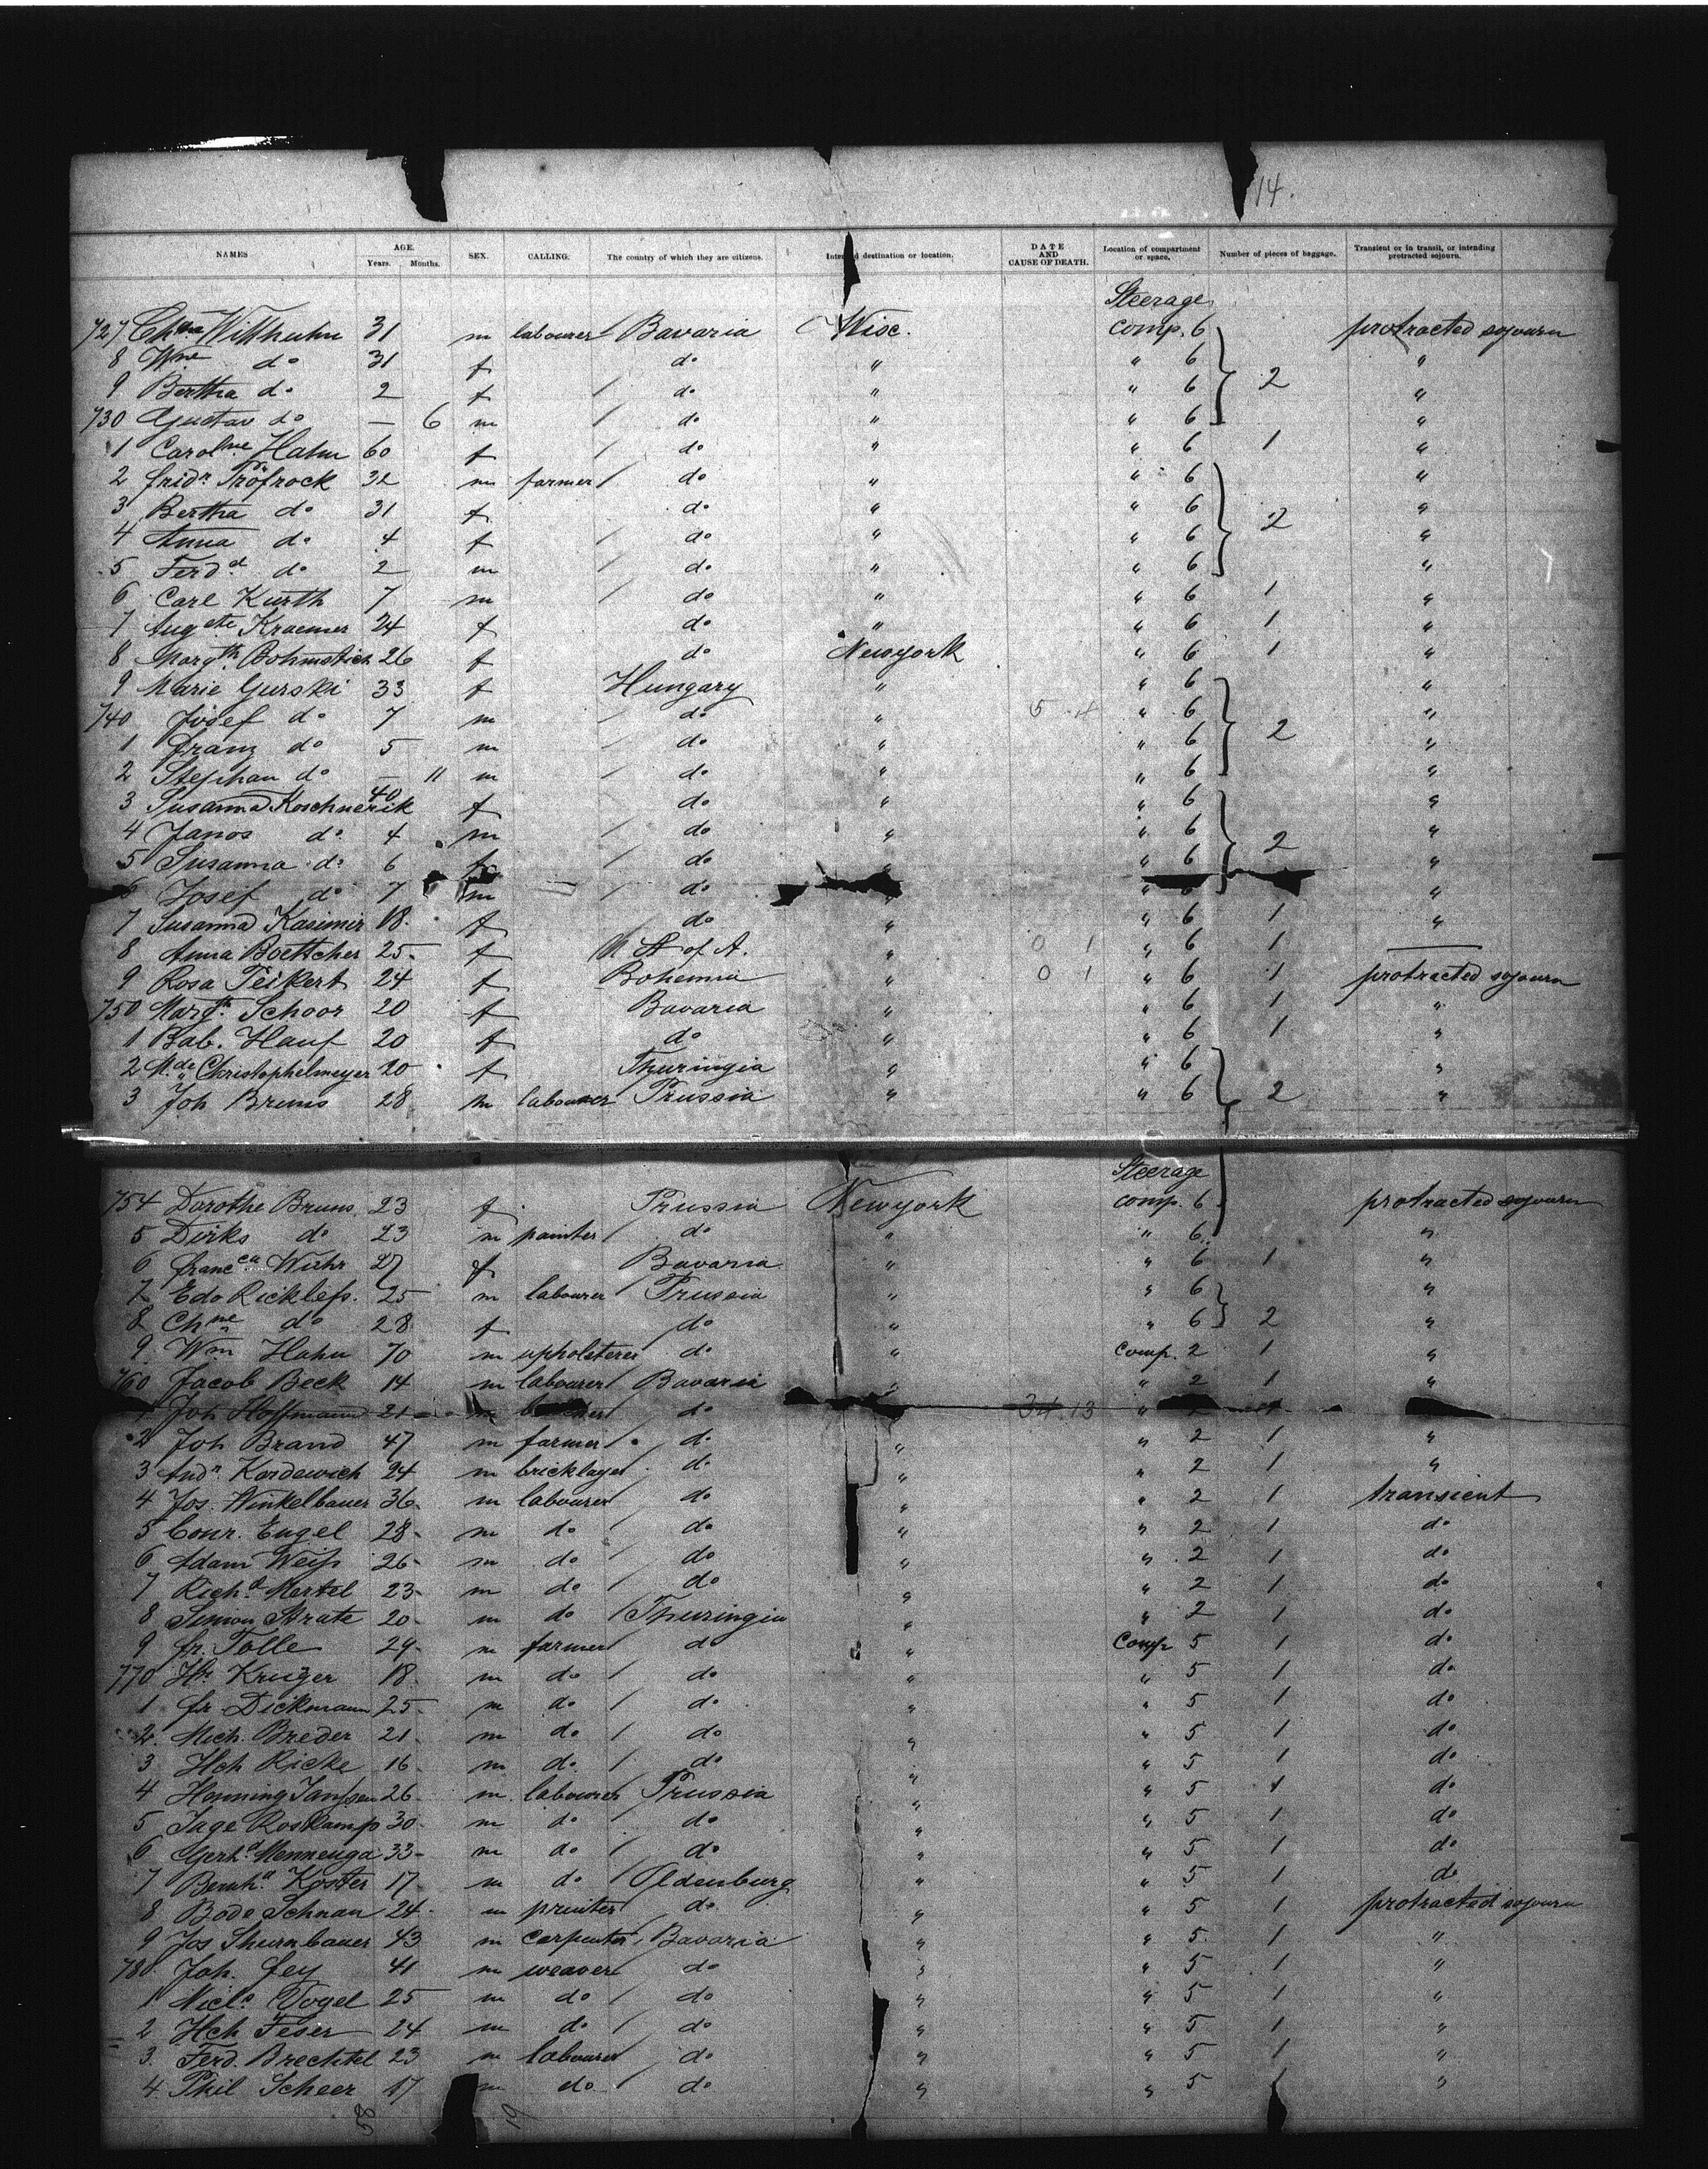 14.
NAMES AGE. Years. Months. SEX. CALLING. The country of which they are citizens. Intended destination or location. DATE AND CAUSE OF DEATH. Location of compartment or space. Number of pieces of baggage. Transient or in transit, or intending protracted sojourn.
Steerage
727 31 m labourer Bavaria Wisc. comp. 6 protracted sojourn
8 Wne do 31 f do " " 6 "
9 Bertha do 2 f do " " 6 2 "
730 Gustav do — 6 m do " " 6 "
1 Carolne Hahn 60 f do " " 6 1 "
2 Fridr Pröfrock 32 m farmer do " " 6 "
3 Bertha do 31 f do " " 6 "
4 Anna do 4 f do " " 6 2 "
5 Ferdd do 2 m do " " 6 "
6 Carl Kurth 7 m do " " 6 1 "
7 Augste Kraemer 24 f do " " 6 1 "
8 Margth 26 f do Newyork " 6 1 "
9 Marie Gurski 33 f Hungary " " 6 "
740 Josef do 7 m do " " 6 "
1 Franz do 5 m do " " 6 2 "
2 Stephan do — 11 m do " " 6 "
3 Susanna Koschnerik 40 f do " " 6 "
4 Janos do 4 m do " " 6 "
5 Susanna do 6 f do " " 6 2 "
6 Josef do 7 m do " " 6 "
7 Susanna Kasimir 18 f do " " 6 1 "
8 Anna Boettcher 25 f U St of A. " 0 1 " 6 1 —
9 Rosa Teikert 24 f Bohemia " 0 1 " 6 1 protracted sojourn
750 Margth Schoor 20 f Bavaria " " 6 1 "
1 Bab. Hauf 20 f do " " 6 1 "
2 Mde Christophelmeyer 20 f Thuringia " " 6 "
3 Joh Bruns 28 m labourer Prussia " " 6 2 "
Steerage
754 Dorothe Bruns 23 f Prussia Newyork comp. 6 protracted sojourn
5 Dirks do 23 m painter do " " 6 "
6 Francca Wuhr 27 f Bavaria " " 6 1 "
7 Edo Ricklefs. 25 m labourer Prussia " " 6 "
8 Chne do 28 f do " " 6 2 "
9 Wm Hahn 70 m upholsterer do " Comp. 2 1 "
760 Jacob Beck 14 m labourer Bavaria " " 2 1 "
1 Joh Hoffmann 21 m butcher do " "
2 Joh Brand 47 m farmer do " " 2 1 "
3 Andr Kordewich 24 m bricklayer do " " 2 1 "
4 Jos. Winkelbauer 36 m labourer do " " 2 1 transient
5 Conr. Engel 28 m do do " " 2 1 do
6 Adam Weiß 26 m do do " " 2 1 do
7 Richd Hertel 23 m do do " " 2 1 do
8 Simon Strate 20 m do Thuringia " " 2 1 do
9 Fr. Tolle 29 m farmer do " Comp 5 1 do
770 Hh Kruger 18 m do do " " 5 1 do
1 Fr Dickmann 25 m do do " " 5 1 do
2 Mich. Breder 21 m do do " " 5 1 do
3 Hch Ricke 16 m do do " " 5 1 do
4 Henning Janssen 26 m labourer Prussia " " 5 1 do
5 Jage Roskamp 30 m do do " " 5 1 do
6 Gerhd Mennenga 33 m do do " " 5 1 do
7 Bernhd Koster 17 m do Oldenburg " " 5 1 do
8 Bodo Schnau 24 m printer do " " 5 1 protracted sojourn
9 Jos Thurnbauer 43 m carpenter Bavaria " " 5 1 "
780 Joh. Fey 41 m weaver do " " 5 1 "
1 Nicls Vogel 25 m do do " " 5 1 "
2 Hch Feser 24 m do do " " 5 1 "
3 Ferd. Brechtel 23 m labourer do " " 5 1 "
4 Phil Scheer 17 m do do " " 5 1 "